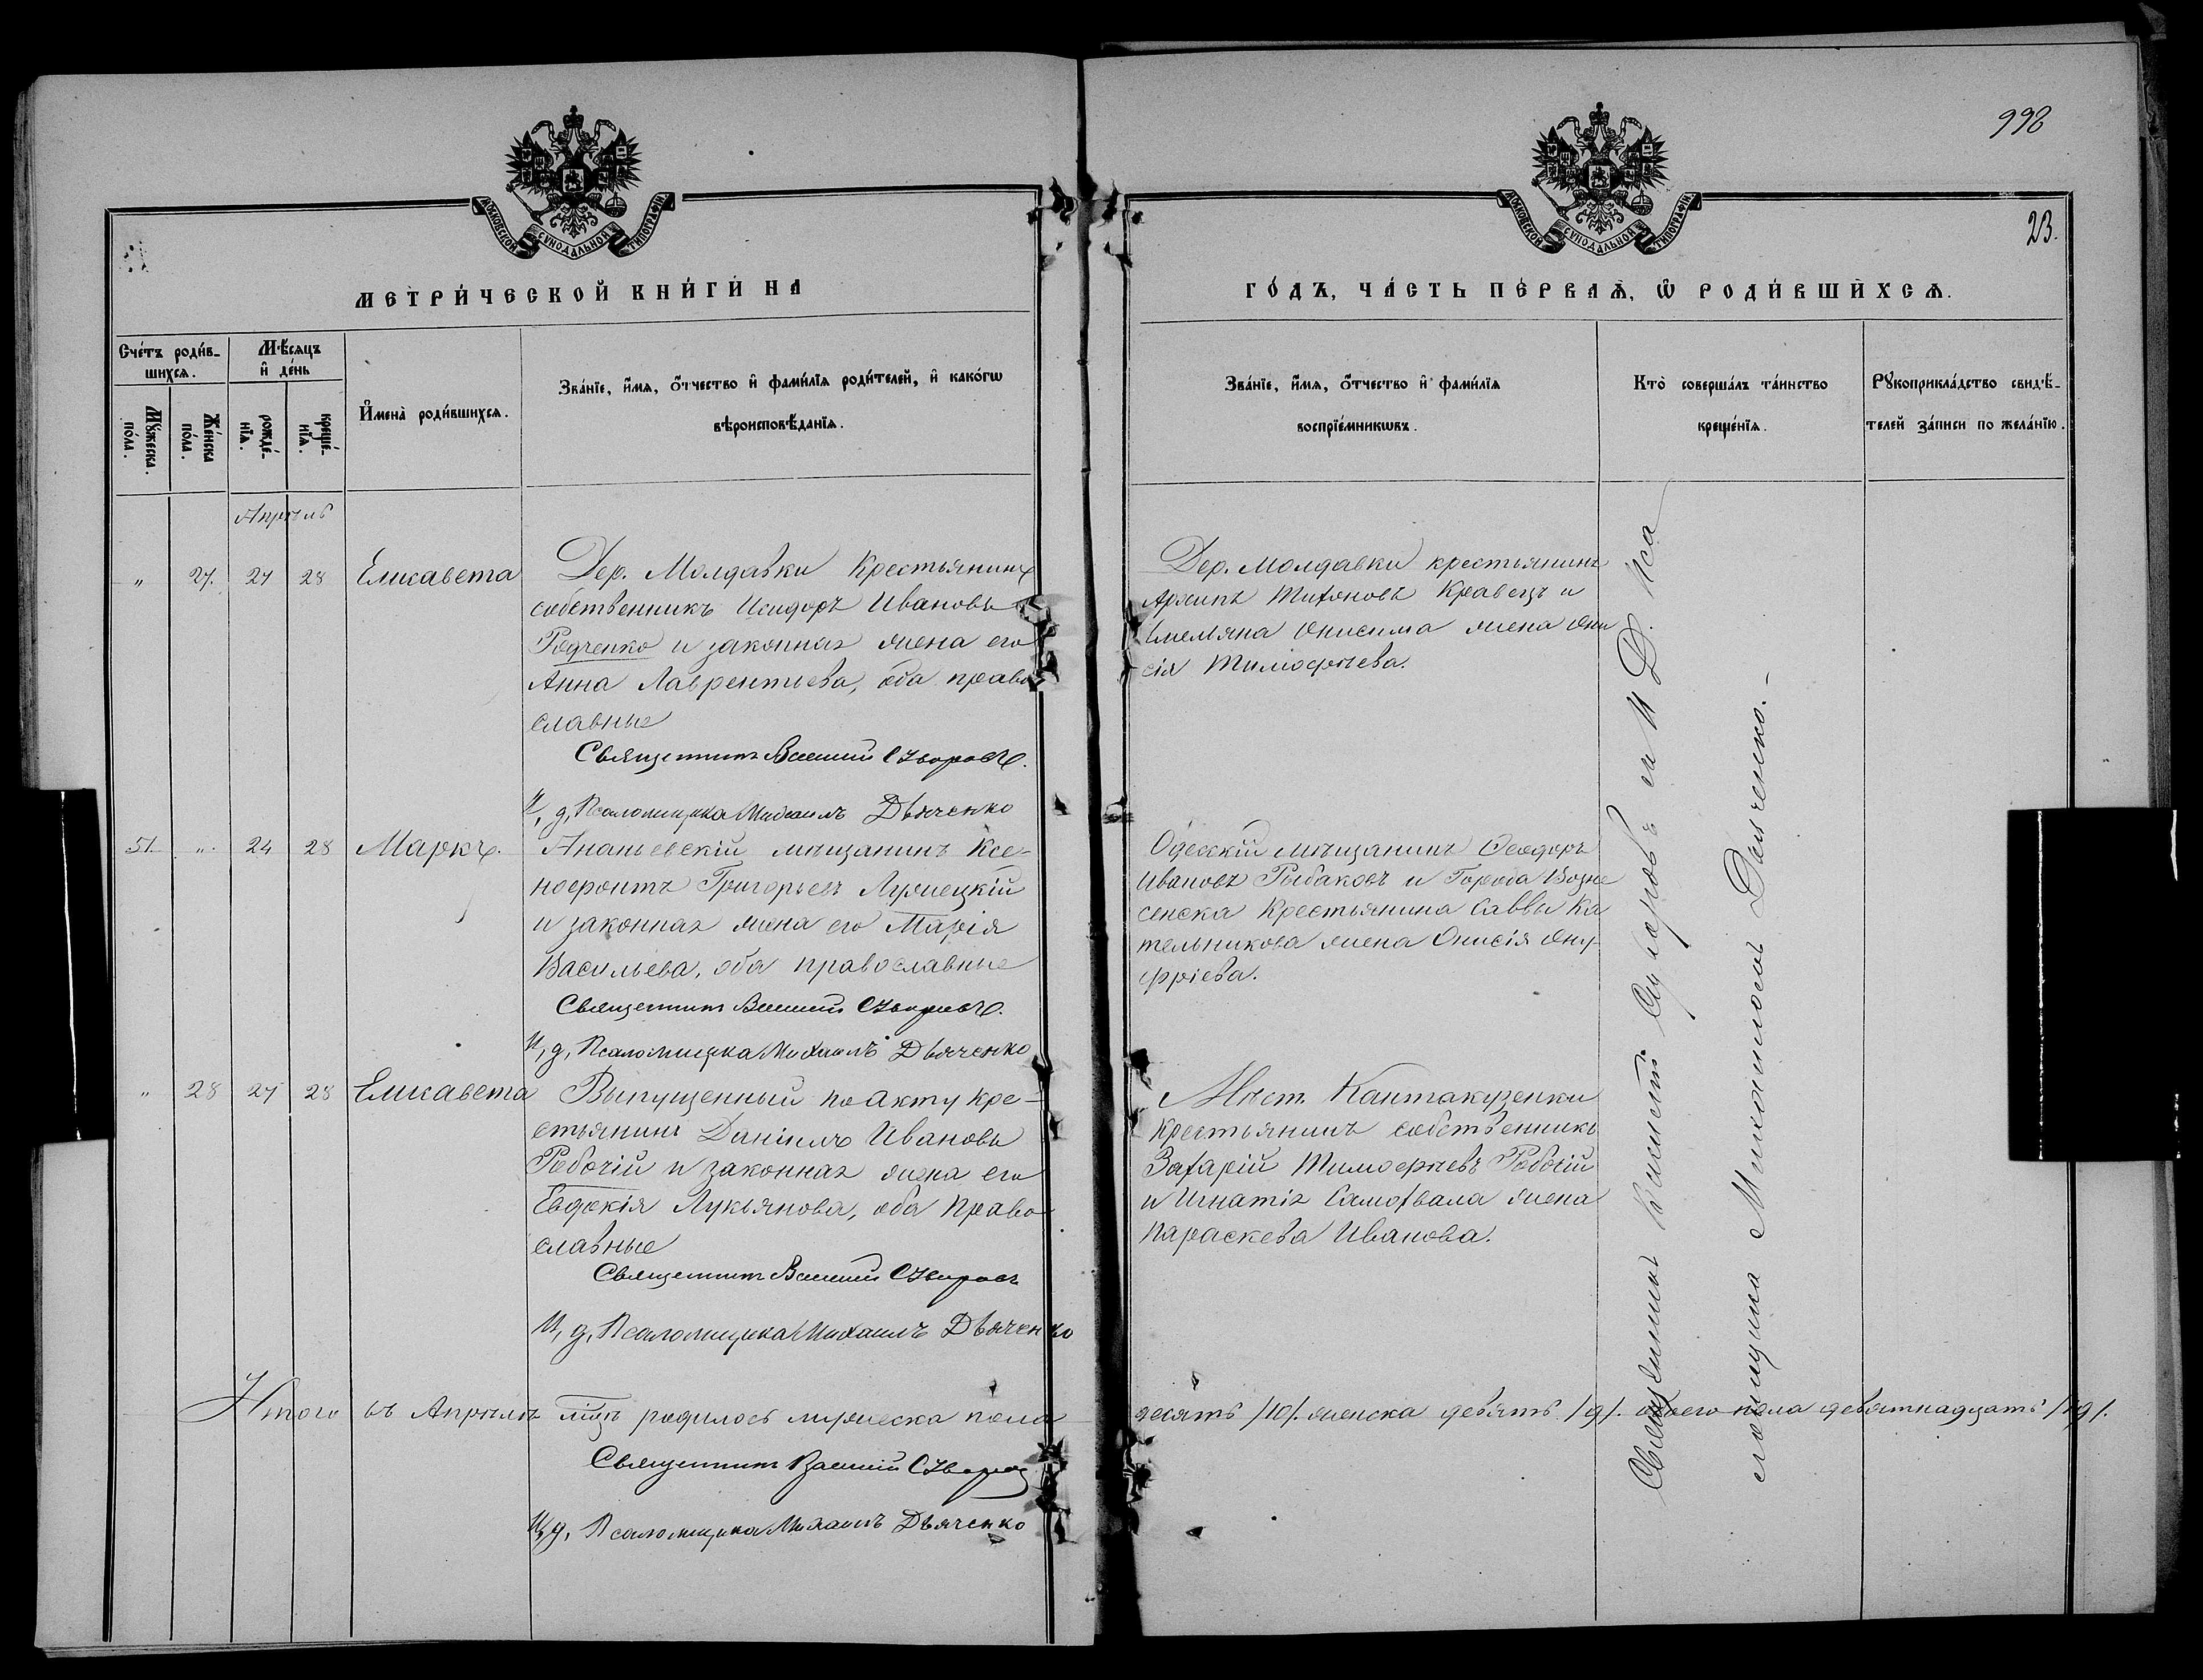 998
23.
МОСКОВСКОЙ СѴНОДАЛЬНОЙ ТИПОГРАФІИ
МЕТРИ́ЧЕСКОЙ КНИ́ГИ НА
МОСКОВСКОЙ СѴНОДАЛЬНОЙ ТИПОГРАФІИ
ГО́ДЪ, ЧА́СТЬ ПЕ́РВАѦ, Ѡ РОДИ́ВШИХСѦ.
Сче́тъ роди́в-
шихсѧ.
Мꙋ́жеска
по́ла.
Же́нска
по́ла.
Мѣ́сѧцъ
и҆ де́нь
рожде́-
нїѧ.
креще́-
нїѧ.
И҆мена̀ роди́вшихсѧ.
Зва́нїе, и҆́мѧ, ѻ҆́тчество и҆ фами́лїѧ роди́телей, и҆ како́гѡ
вѣроисповѣ́данїѧ.
Зва́нїе, и҆́мѧ, ѻ҆́тчество и҆ фами́лїѧ
воспрїе́мникѡвъ.
Кто̀ соверша́лъ та́инство
креще́нїѧ.
Рꙋкоприкла́дство свидѣ́-
телей за́писи по жела́нїю.
Апрѣль
" 27. 27 28 Елисавета
Дер. Молдавки Крестьянинъ
собственникъ Исидоръ Ивановъ
Родченко и законная жена его
Анна Лаврентьева, оба право
славные
Священникъ Василий
И, д, Псаломщика Михаилъ Дьяченко
Дер. Молдавки крестьянинъ
Архипъ Тихоновъ Кравецъ и
Емельяна Онисима жена Они
сія Тимофѣева.
51 " 24 28 Маркъ.
Ананьевскій мѣщанинъ Ксе-
нофонтъ Григорьевъ Лужецкій
и законная жена его Марія
Васильева, оба православные
Священникъ Василий
И, д, Псаломщика Михаилъ Дьяченко
Одесскій мѣщанинъ Феодоръ
Ивановъ Рыбаковъ и Города Возне
сенска Крестьянина Саввы Ка
тельникова жена Онисія Ону-
фріева.
" 28 27 28 Елисавета
Выпущенный по акту кре-
стьянинъ Даніилъ Ивановъ
Рабочій и законная жена его
Евдокія Лукьянова, оба Право
славные
Священникъ Василий
И, д, Псаломщика Михаилъ Дьяченко
Мѣст. Кантакузенки
крестьянинъ собственникъ
Захарій Тимофѣевъ Рабочій
и Игнатія Самохвала жена
Параскева Иванова.
Священникъ Василий и И. Д. Пса
ломщика Михаилъ Дьяченко.-
Итого въ Апрѣлѣ мцѣ родилось мужеска пола десять /10/. женска девять /9/. обоего пола девятнадцать /19/.
Священникъ Василий
И, д, Псаломщика Михаилъ Дьяченко